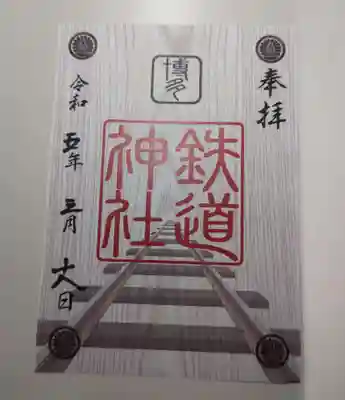 奉拝
博多
鉄道
神社
令和五年三月
日